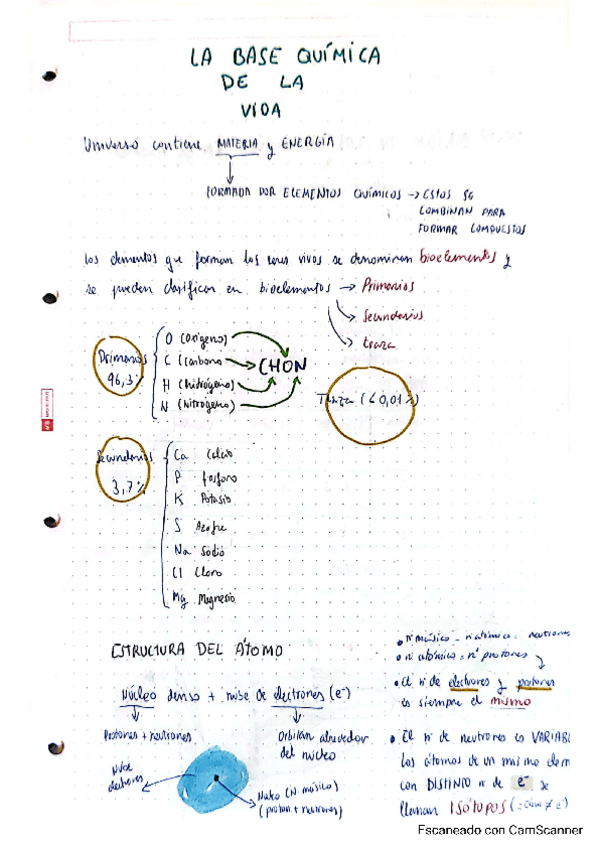 LA BASE QUÍMICA
DE LA
VIDA
Universo contiene MATERIA y ENERGÍA
FORMADA POR ELEMENTOS QUÍMICOS → ESTOS SE
COMBINAN PARA
FORMAR COMPUESTOS
Los elementos que forman los seres vivos se denominan bioelementos y
se pueden clasificar en bioelementos → Primarios
Secundarios
traza
Primarios
96,3%
O (oxígeno)
C (carbono
H (hidrógeno)
N (nitrógeno)
CHON
Traza (<0,01%)
Secundarios
3,7%
Ca Calcio
P fosforo
K Potasio
S Azufre
Na Sodio
Cl Cloro
Mg Magnesio
ESTRUCTURA DEL ÁTOMO
Núcleo denso + nube de electrones (e⁻)
Protones + neutrones
Orbitan alrededor
del núcleo
Nube
electrones
Nucleo (N másico)
(proton + neutrones)
• nº másico - n atómico = neutrones
• nº atómico = nº protones
• El nº de electrones y protones
es siempre el mismo
• El nº de neutrones es VARIABL
los átomos de un mismo elem
con DISTINTO nº de e⁻ se
llaman ISÓTOPOS
Escaneado con CamScanner